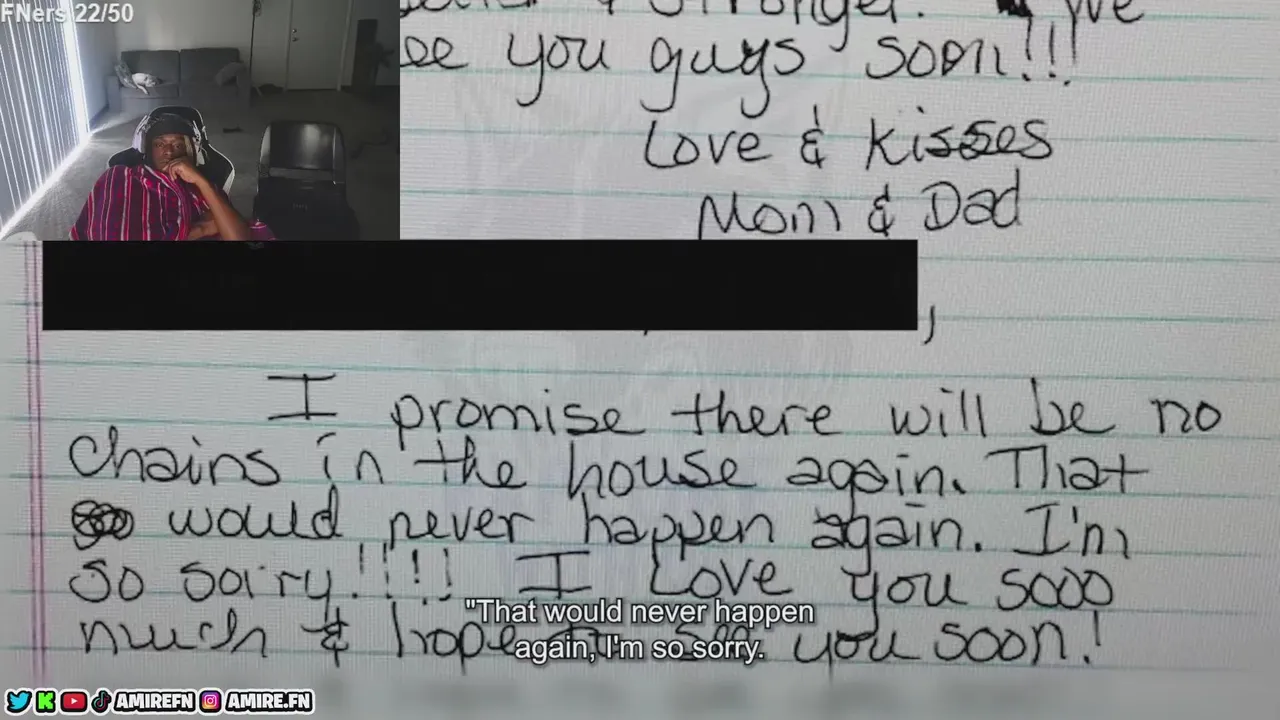 FNers 22/50
Stronger.
you guys soon!!!
Love & Kisses
Mom & Dad
,
I promise there will be no
chains in the house again. That
would never happen again. I'm
so sorry!!!! I Love you sooo
much & hope to see you soon!
"That would never happen
again, I'm so sorry.
AMIREFN AMIRE.FN